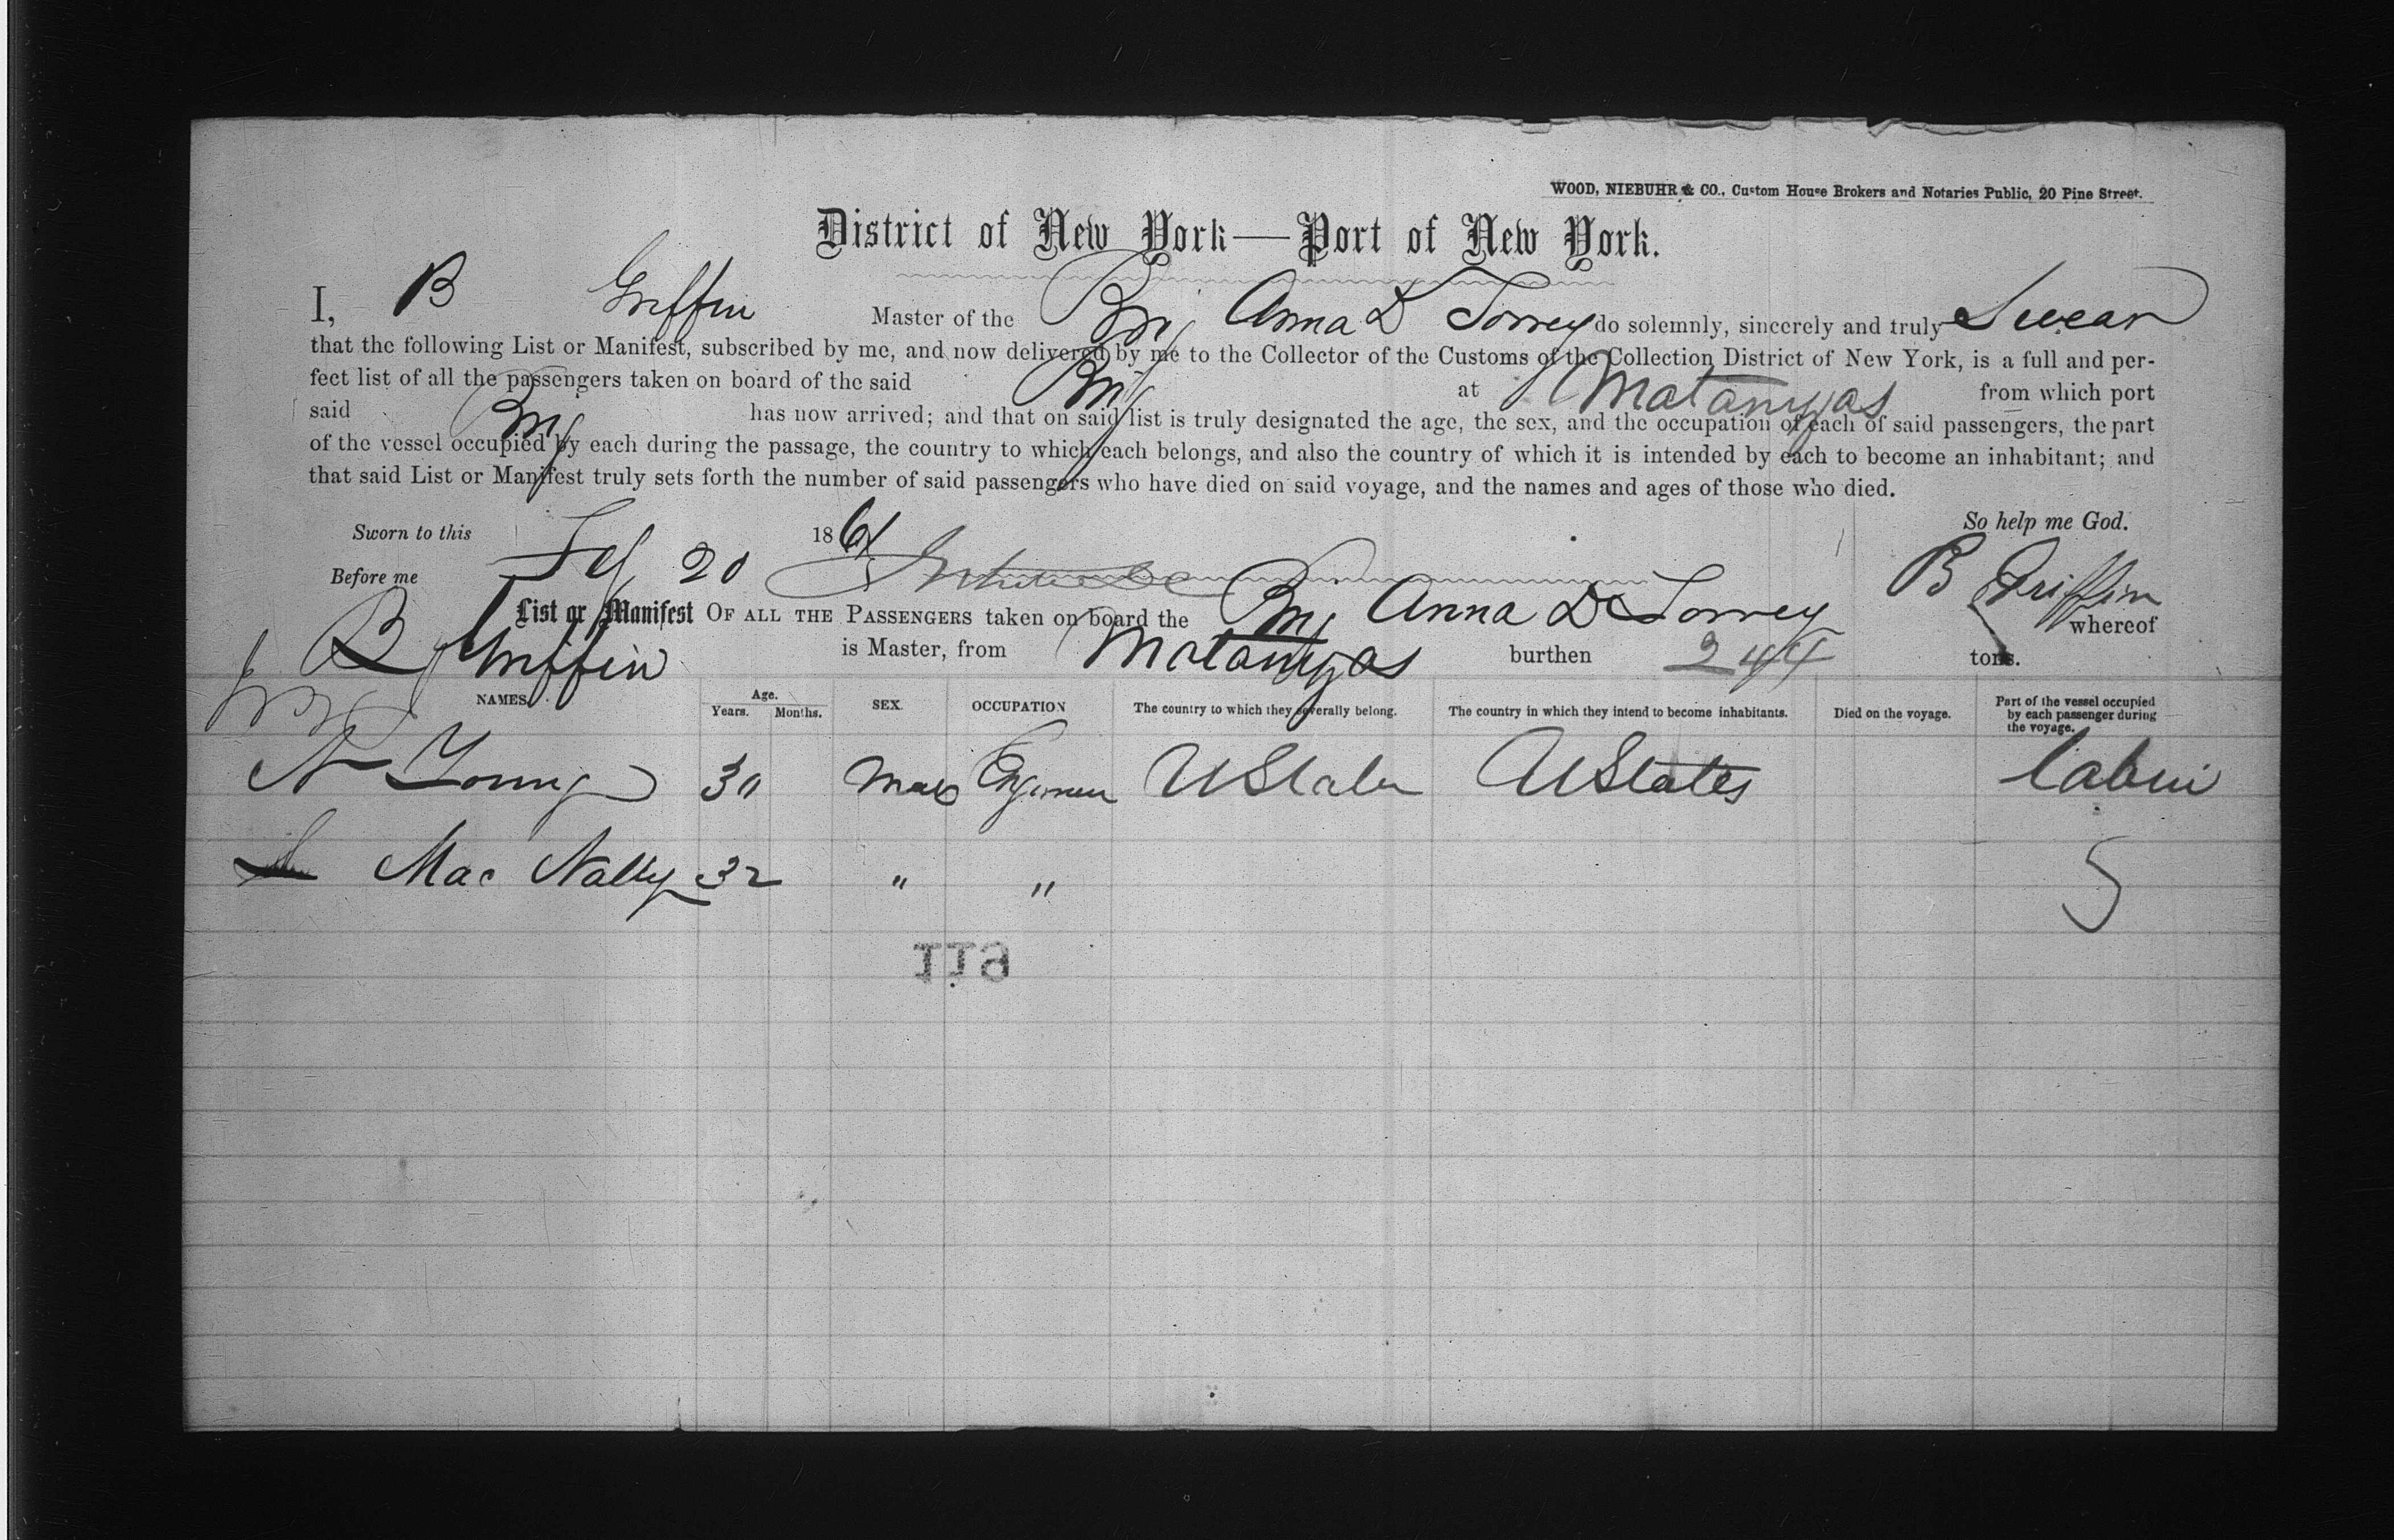 WOOD, NIEBUHR & CO., Custom House Brokers and Notaries Public, 20 Pine Street.
District of New York—Port of New York.
I, B Griffin Master of the Brig Anna D Torrey do solemnly, sincerely and truly Swear
that the following List or Manifest, subscribed by me, and now delivered by me to the Collector of the Customs of the Collection District of New York, is a full and per-
fect list of all the passengers taken on board of the said Brig at Matanzas from which port
said Brig has now arrived; and that on said list is truly designated the age, the sex, and the occupation of each of said passengers, the part
of the vessel occupied by each during the passage, the country to which each belongs, and also the country of which it is intended by each to become an inhabitant; and
that said List or Manifest truly sets forth the number of said passengers who have died on said voyage, and the names and ages of those who died.
Sworn to this Feb 20 1861 So help me God.
Before me B Griffin
List or Manifest OF ALL THE PASSENGERS taken on board the Brig Anna D Torrey whereof
B Griffin is Master, from Matanzas burthen 244 tons.
NAMES. Age. Years. Months. SEX. OCCUPATION The country to which they severally belong. The country in which they intend to become inhabitants. Died on the voyage. Part of the vessel occupied by each passenger during the voyage.
N Young 30 Male Engineer UStates UStates Cabin
Mac Nally 32 " "
119